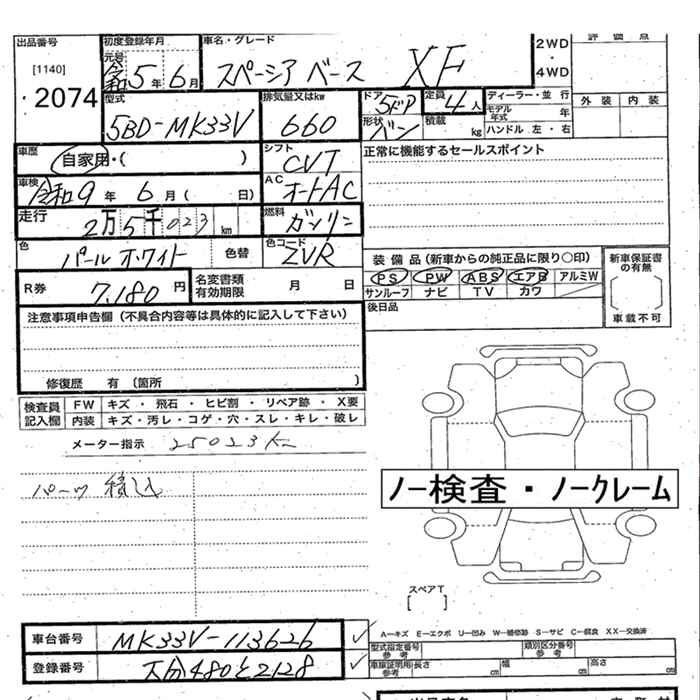 出品番号 初度登録年月 車名・グレード 評価点
[1140] 元号 令和5年6月 スペーシア ベース XF 2WD ・ 4WD
・2074 型式 排気量又はkw ドア 5ドア 定員 4人 ディーラー・並行 外装 内装
5BD-MK33V 660 形状 バン 積載 kg モデル年式 年
ハンドル 左・右
車歴 自家用・( ) シフト CVT 正常に機能するセールスポイント
車検 令和9年6月( 日) AC オートAC
走行 2万5千023km 燃料 ガソリン
色 パールホワイト 色替 色コード ZVR 装備品(新車からの純正品に限り○印) 新車保証書の有無
R券 7,180円 名変書類有効期限 月 日 PS PW ABS エアB アルミW
サンルーフ ナビ TV カワ
注意事項申告欄(不具合内容等は具体的に記入して下さい) 後日品 車載不可
修復歴 有(箇所 )
検査員記入欄 FW キズ・飛石・ヒビ割・リペア跡・X要
内装 キズ・汚レ・コゲ・穴・スレ・キレ・破レ
メーター指示 25023km
パーツ 積込 ノー検査・ノークレーム
スペアT
[ ]
車台番号 MK33V-113626 A－キズ E－エクボ U－凹み W－補修跡 S－サビ C－腐食 XX－交換済
型式指定番号 参考 類別区分番号 参考
登録番号 大分480と2128 車庫証明用 参考 長さ cm 幅 cm 高さ cm